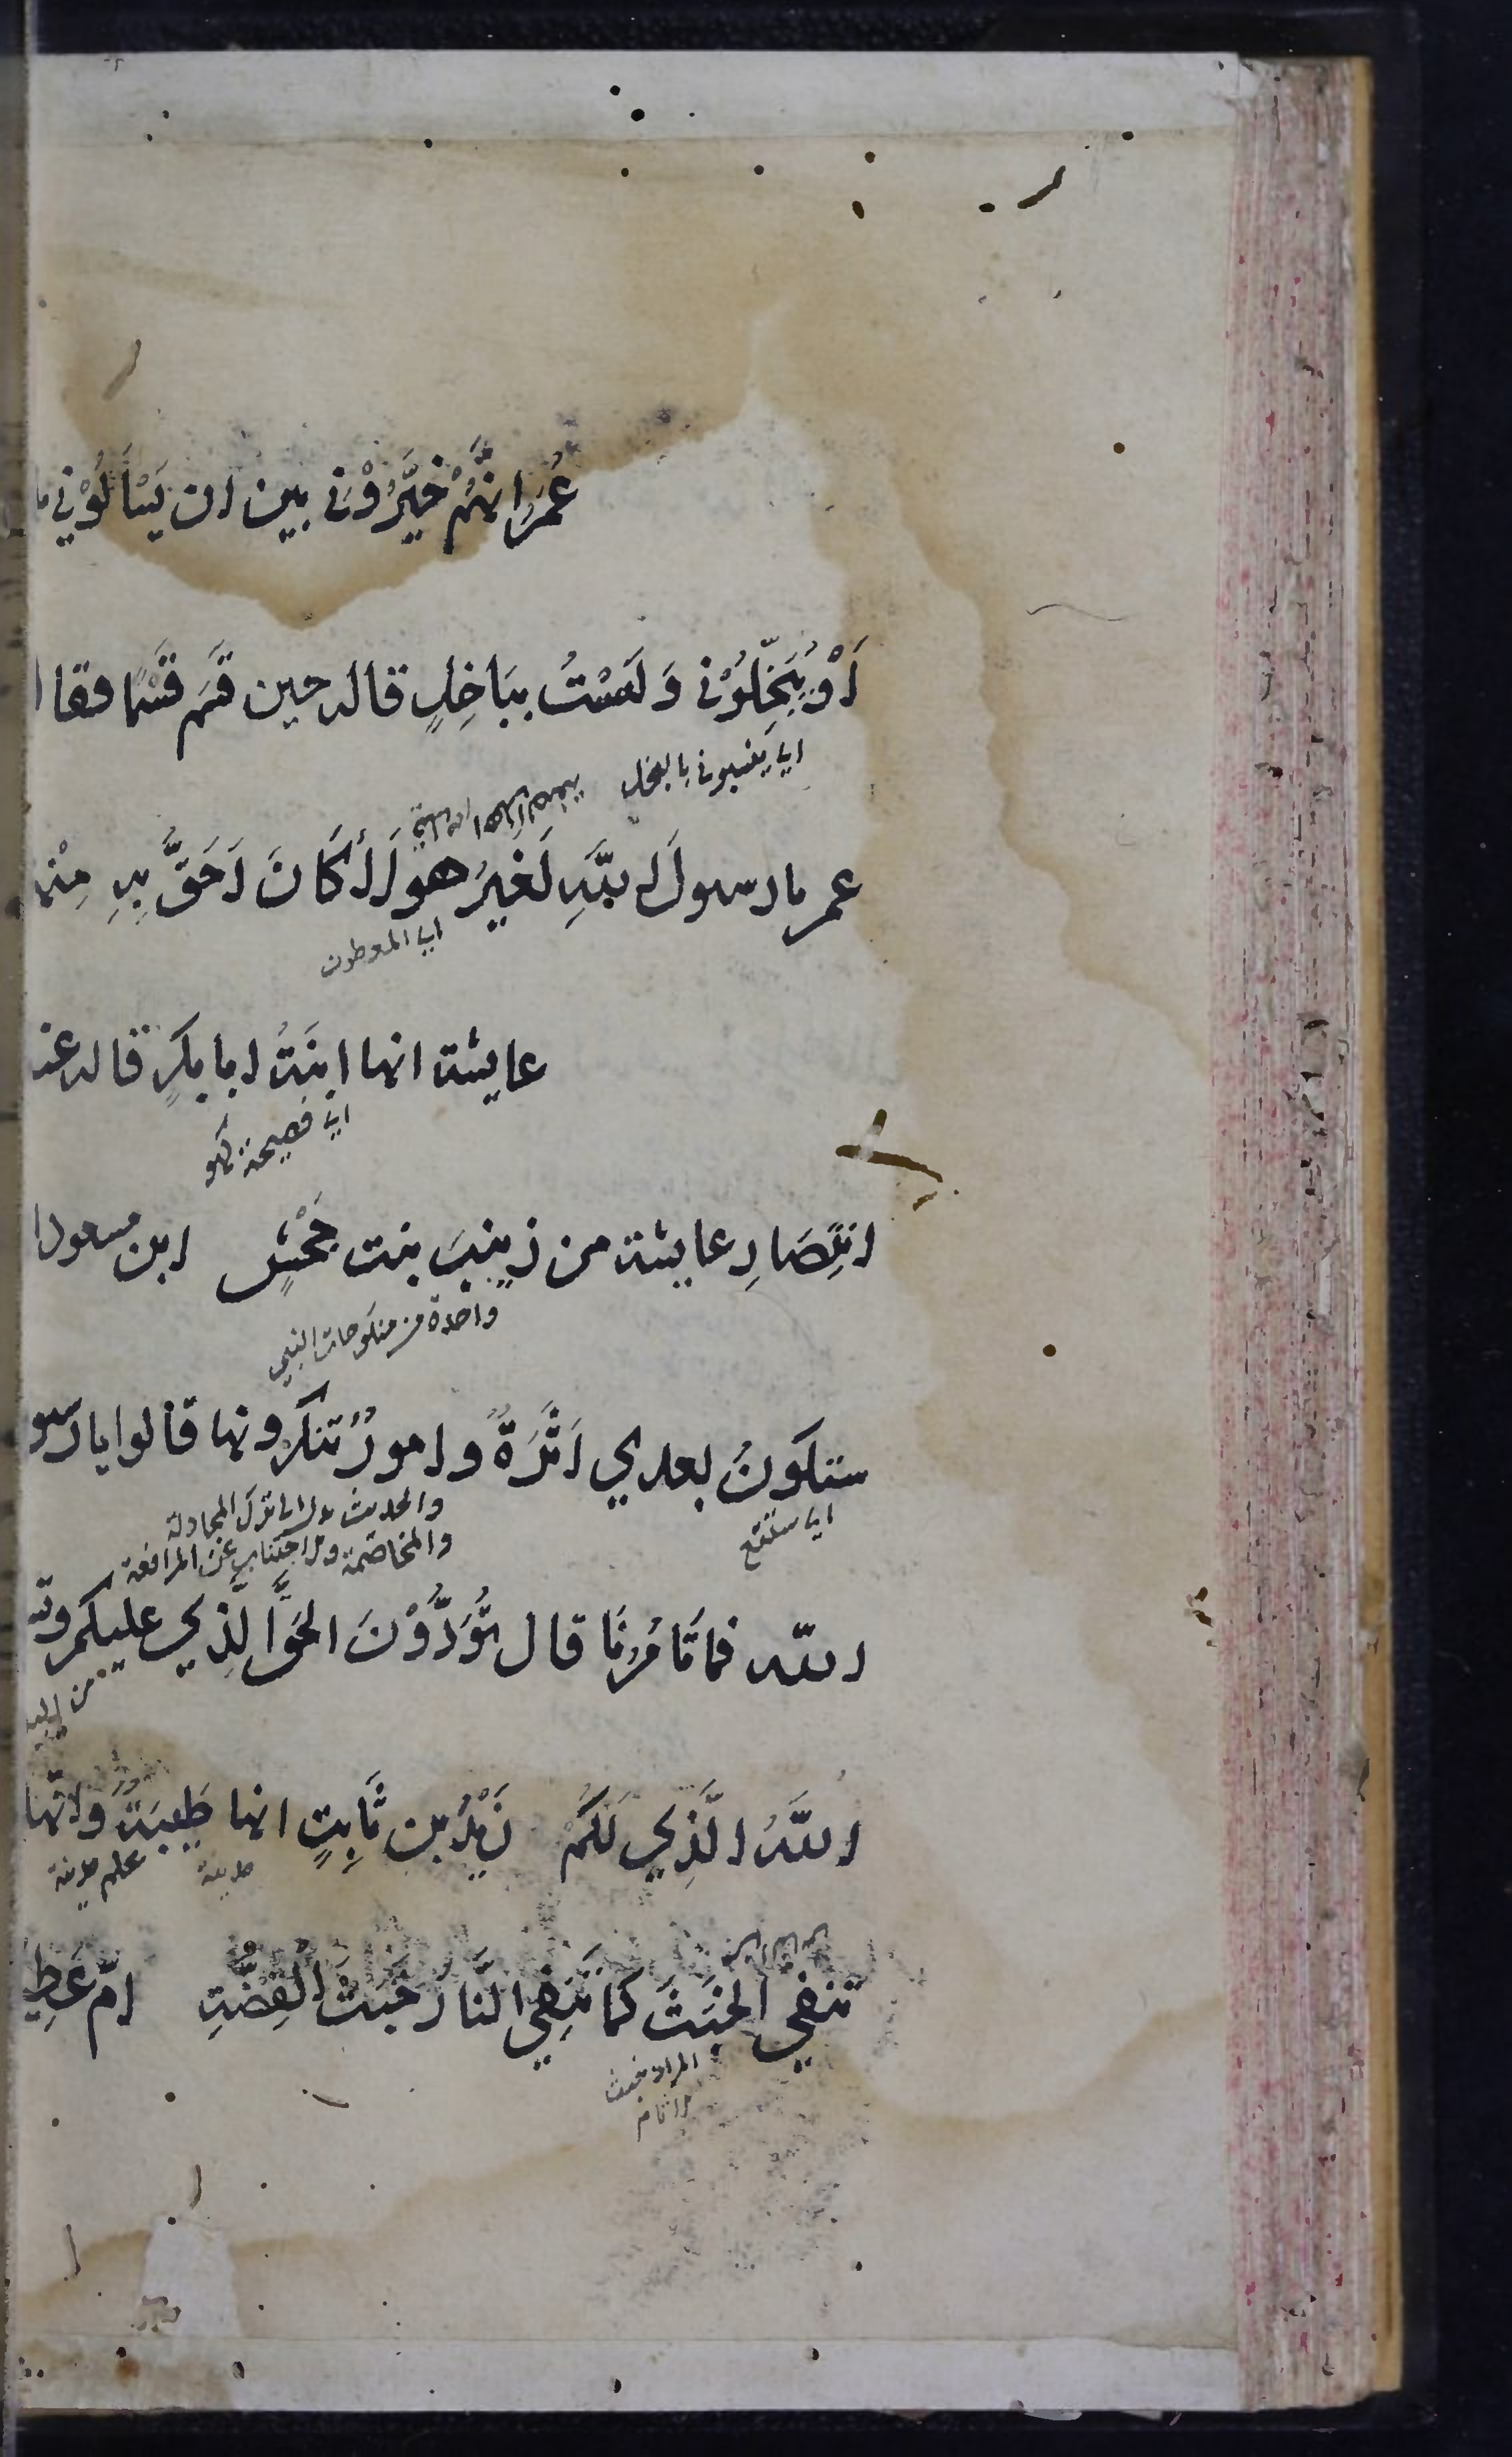 عُمَرُ انَّهُمْ خَيَّرُوْنِي بين ان يَسْاَلُوْنِي
اَوْ يُبَخِّلُوْنِي وَ لَسْتُ بِبَاخِلٍ قاله حين قَسَم قَسْمًا فقا
اي ينسبوني بالبخل
عمر يا رسولَ اللهِ لَغَيْرُ هولَاءِ كَانَ اَحَقَّ بِهِ مِنْهم
اي المعطون
عايشة انها ابنَةُ ابا بكرٍ قاله عند
اي فصيحة كهو
انتِصَارِ عايشة من زينبَ بنت جَحْشٍ ابن مسعود
واحدة من منكوحات النبي
ستكونُ بعدي اَثَرَةٌ و امورٌ تنكرونها قالوا يا رسو
اي ستقع
والحديث يدل الى ترك المجادلة
والمخاصمة والاجتناب عن المرافعة
الله فما تَامُرُنَا قال تُؤَدُّوْنَ الحَقَّ الَّذِي عليكم وتـ
اللهَ الَّذِي لَكُمْ زَيْدُ بن ثَابِتٍ انها طَيِّبَةٌ وَانّها
مدينة
علم مدينة
تنفي الخَبَثَ كما تَنْفِي النَّارُ خَبَثَ الْفِضَّةِ امّ عَطِيـ
المراد خبث
الاثام